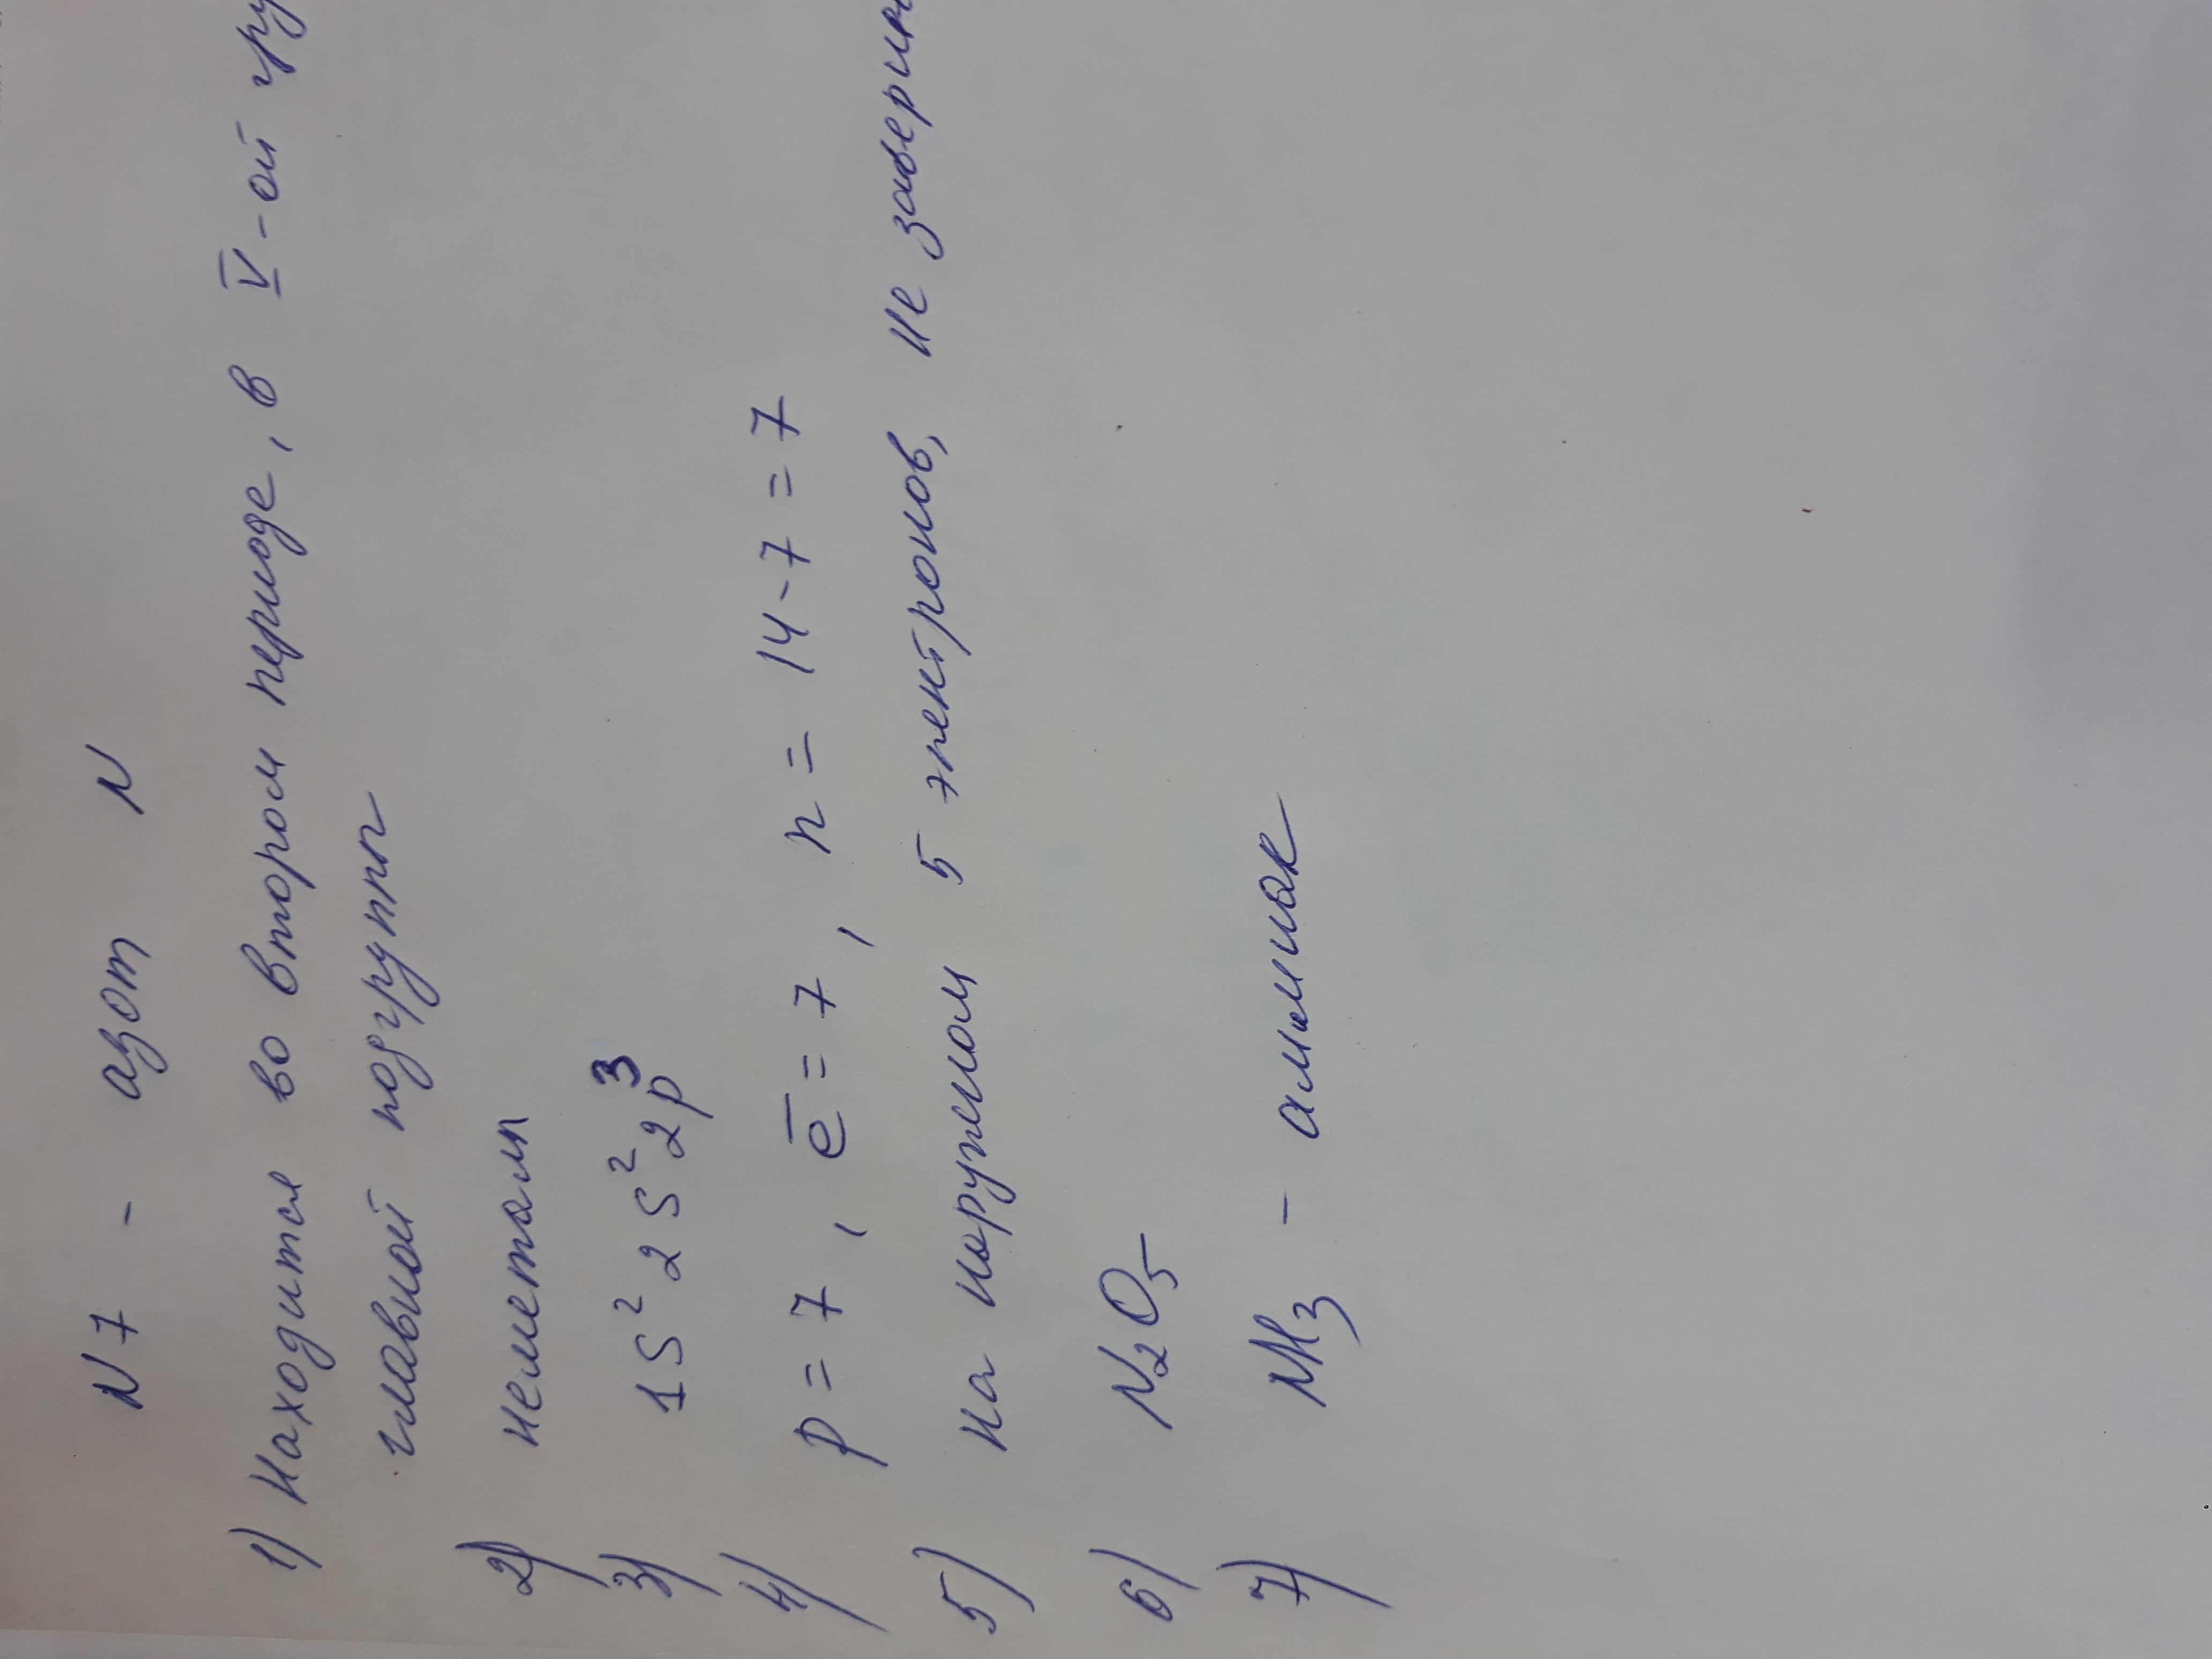 N7 - азот N
1) Находится во втором периоде, в V-ой
главной подгрупп
2) неметалл
3) 1S² 2S² 2p³
4) p = 7, e̅ = 7, n = 14 - 7 = 7
5) на наружном 5 электронов, не
6) N₂O₅
7) NH₃ - аммиак